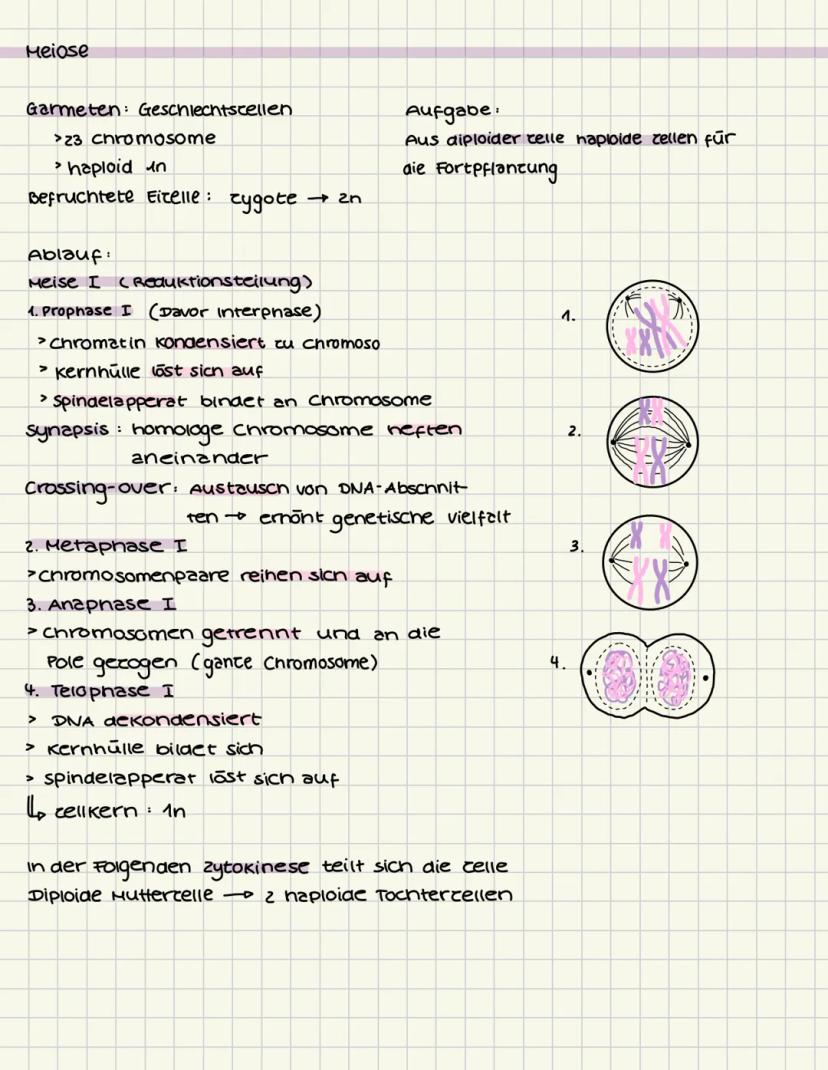 Meiose
Garmeten: Geschlechtszellen
>23 Chromosome
> haploid 1n
Befruchtete Eizelle: Zygote → 2n
Aufgabe:
Aus diploider Zelle haploide Zellen für
die Fortpflanzung
Ablauf:
Meise I (Reduktionsteilung)
1. Prophase I (Davor Interphase)
> Chromatin kondensiert zu Chromoso
> Kernhülle löst sich auf
> Spindelapperat bindet an Chromosome
Synapsis: homologe Chromosome heften
aneinander
Crossing-over: Austausch von DNA-Abschnit-
ten → erhöht genetische Vielfalt
2. Metaphase I
> Chromosomenpaare reihen sich auf
3. Anaphase I
> Chromosomen getrennt und an die
Pole gezogen (ganze Chromosome)
4. Telophase I
> DNA dekondensiert
> Kernhülle bildet sich
> Spindelapperat löst sich auf
↳ Zellkern: 1n
In der Folgenden Zytokinese teilt sich die Zelle
Diploide Mutterzelle → 2 haploide Tochterzellen
1.
2.
3.
4.